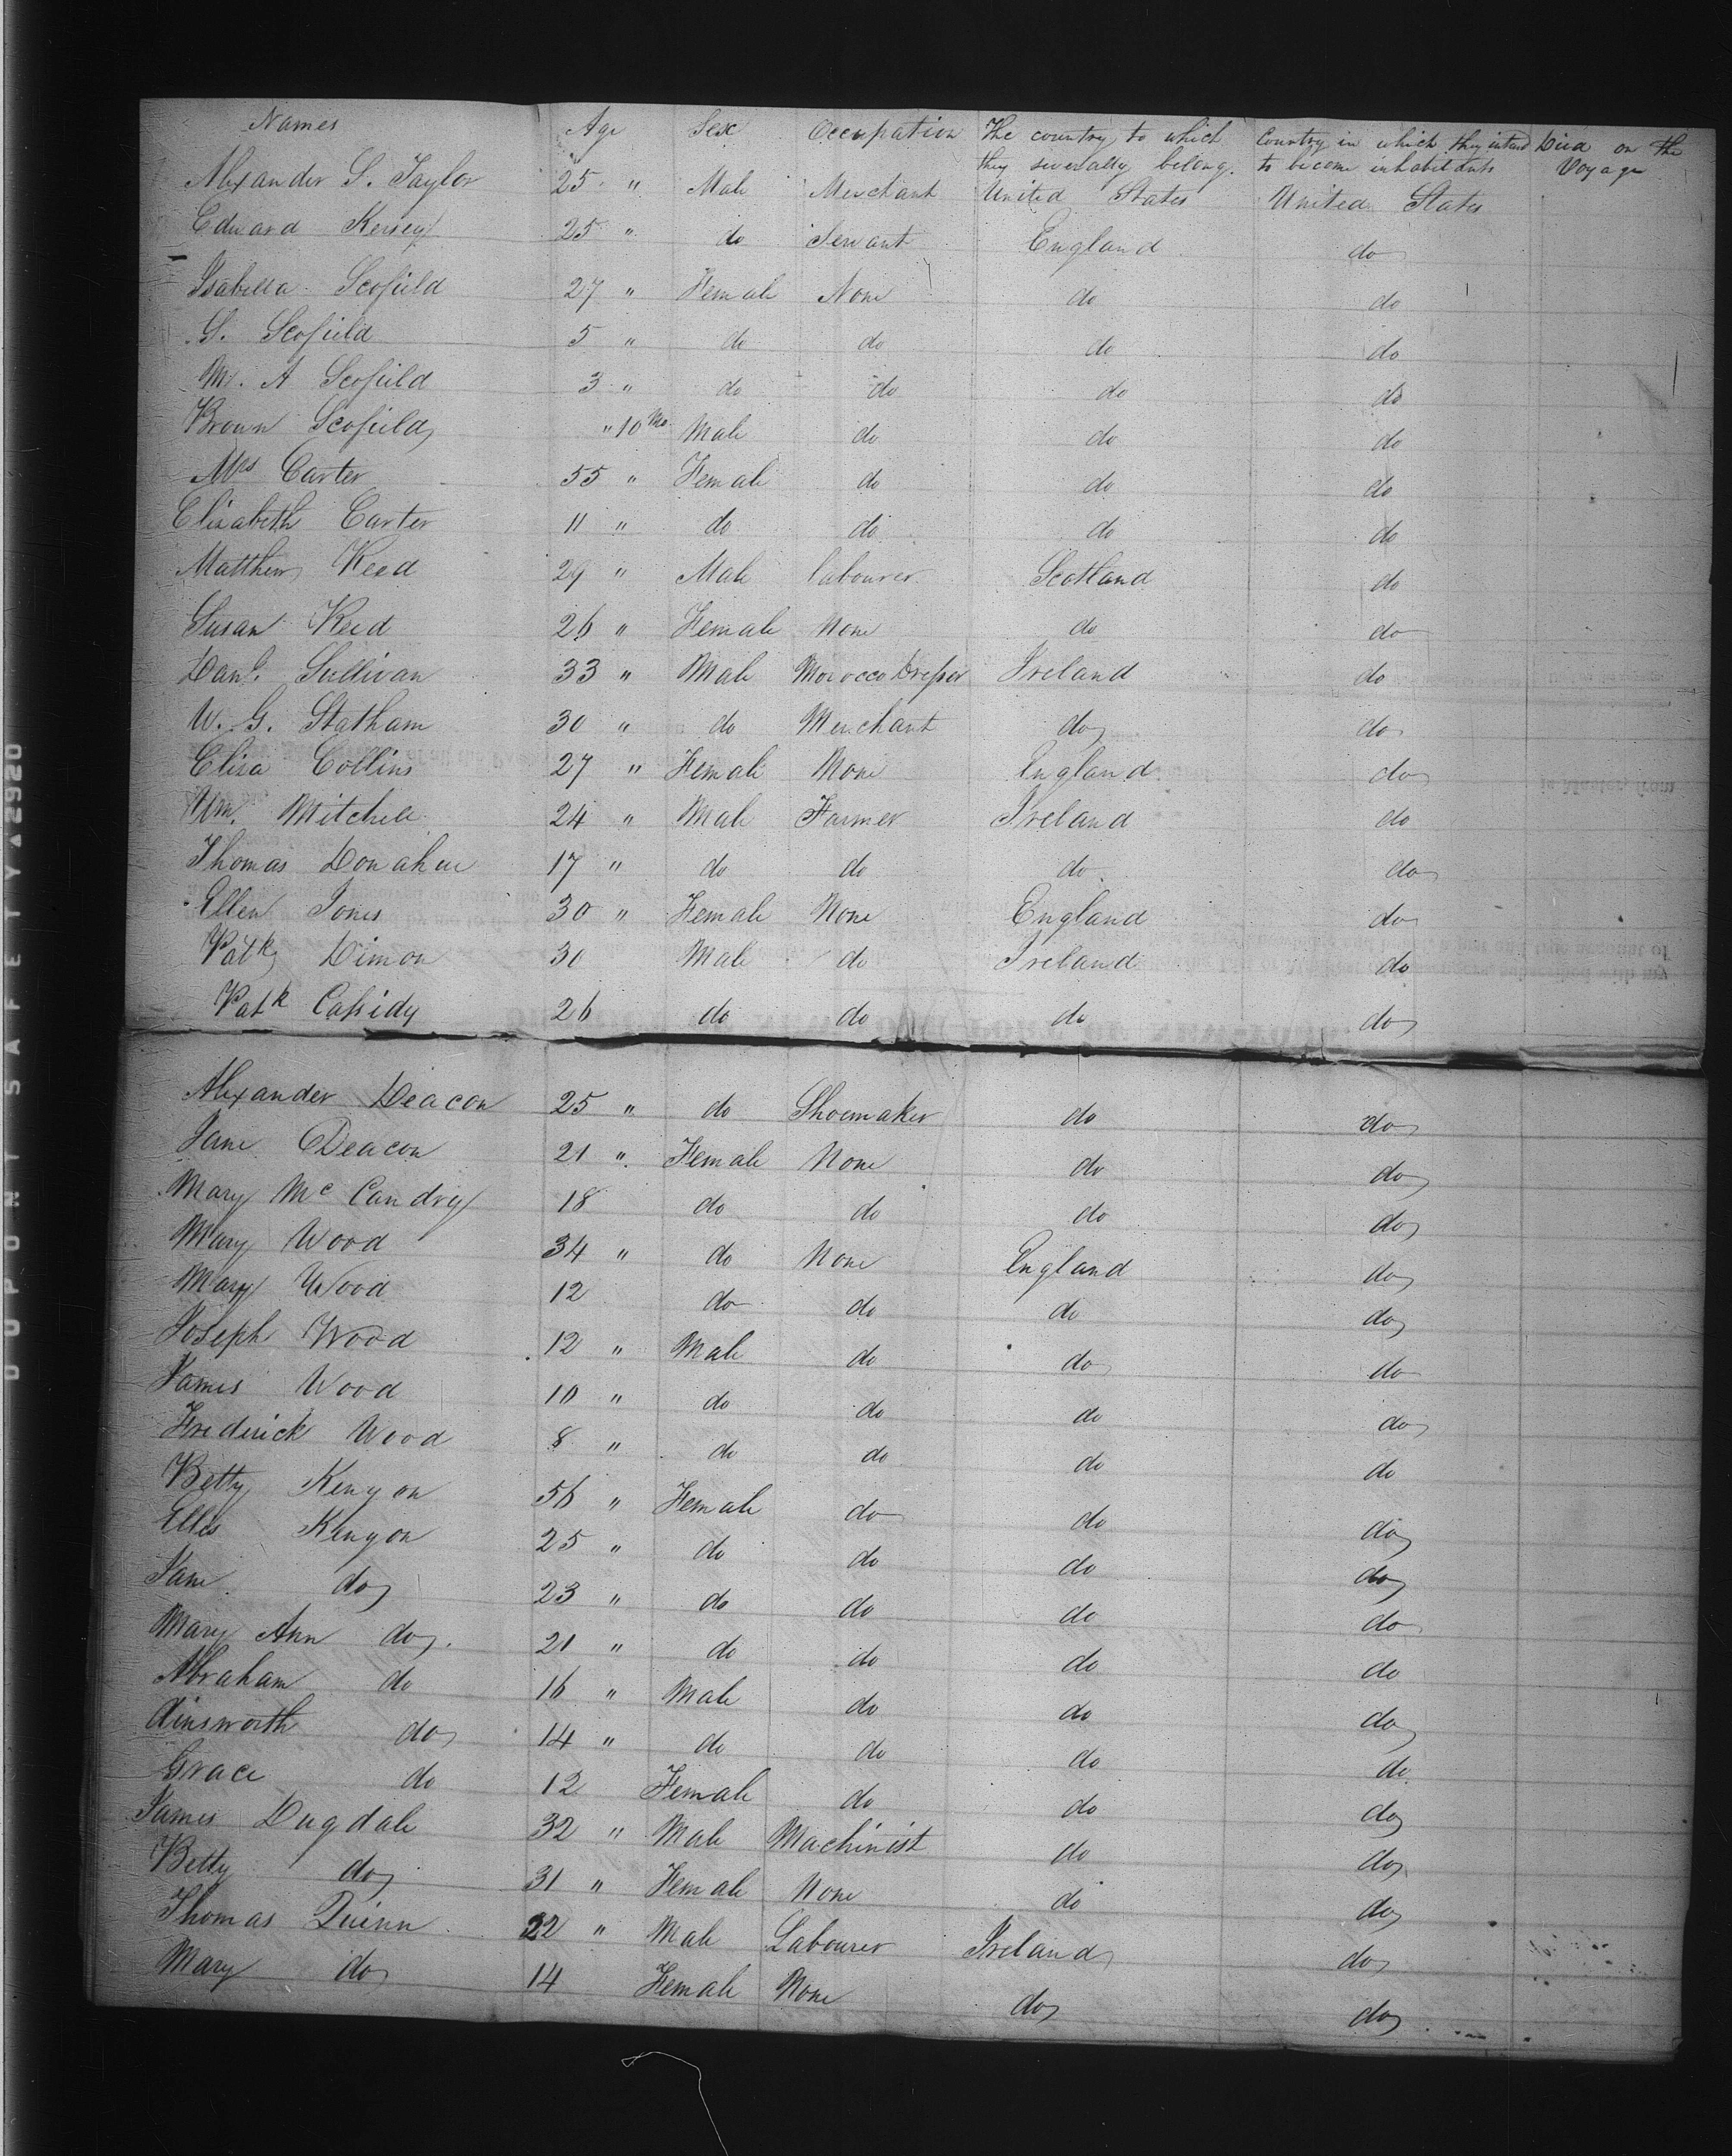 Names Age Sex Occupation The country to which they severally belong. Country in which they intend to become inhabitants Died on the Voyage
Alexander S. Taylor 25 " Male Merchant United States United States
Edward Kersey 25 " do Servant England do
Isabella Scofield 27 " Female None do do
S. Scofield 5 " do do do do
M. A Scofield 3 " do do do do
Brown Scofield " 10 Mo Male do do do
Mrs Carter 55 " Female do do do
Elizabeth Carter 11 " do do do do
Matthew Reed 29 " Male labourer Scotland do
Susan Reed 26 " Female None do do
Danl. Sullivan 33 " Male Morocco Dresser Ireland do
W. G. Statham 30 " do Merchant do do
Eliza Collins 27 " Female None England do
Wm. Mitchell 24 " Male Farmer Ireland do
Thomas Donahue 17 " do do do do
Ellen Jones 30 " Female None England do
Patk Dimon 30 Male do Ireland do
Patk Cassidy 26 do do do do
Alexander Deacon 25 " do Shoemaker do do
Jane Deacon 21 " Female None do do
Mary Mc Candry 18 do do do do
Mary Wood 34 " do None England do
Mary Wood 12 do do do do
Joseph Wood 12 " Male do do do
James Wood 10 " do do do do
Frederick Wood 8 " do do do do
Betty Kenyon 56 " Female do do do
Elles Kenyon 25 " do do do do
Jane do 23 " do do do do
Mary Ann do. 21 " do do do do
Abraham do 16 " Male do do do
Ainsworth do 14 " do do do do
Grace do 12 Female do do do
James Dugdale 32 " Male Machinist do do
Betty do 31 " Female None do do
Thomas Quinn 22 " Male Labourer Ireland do
Mary do 14 Female None do do
DUPONT SAFETY ▲ 2920